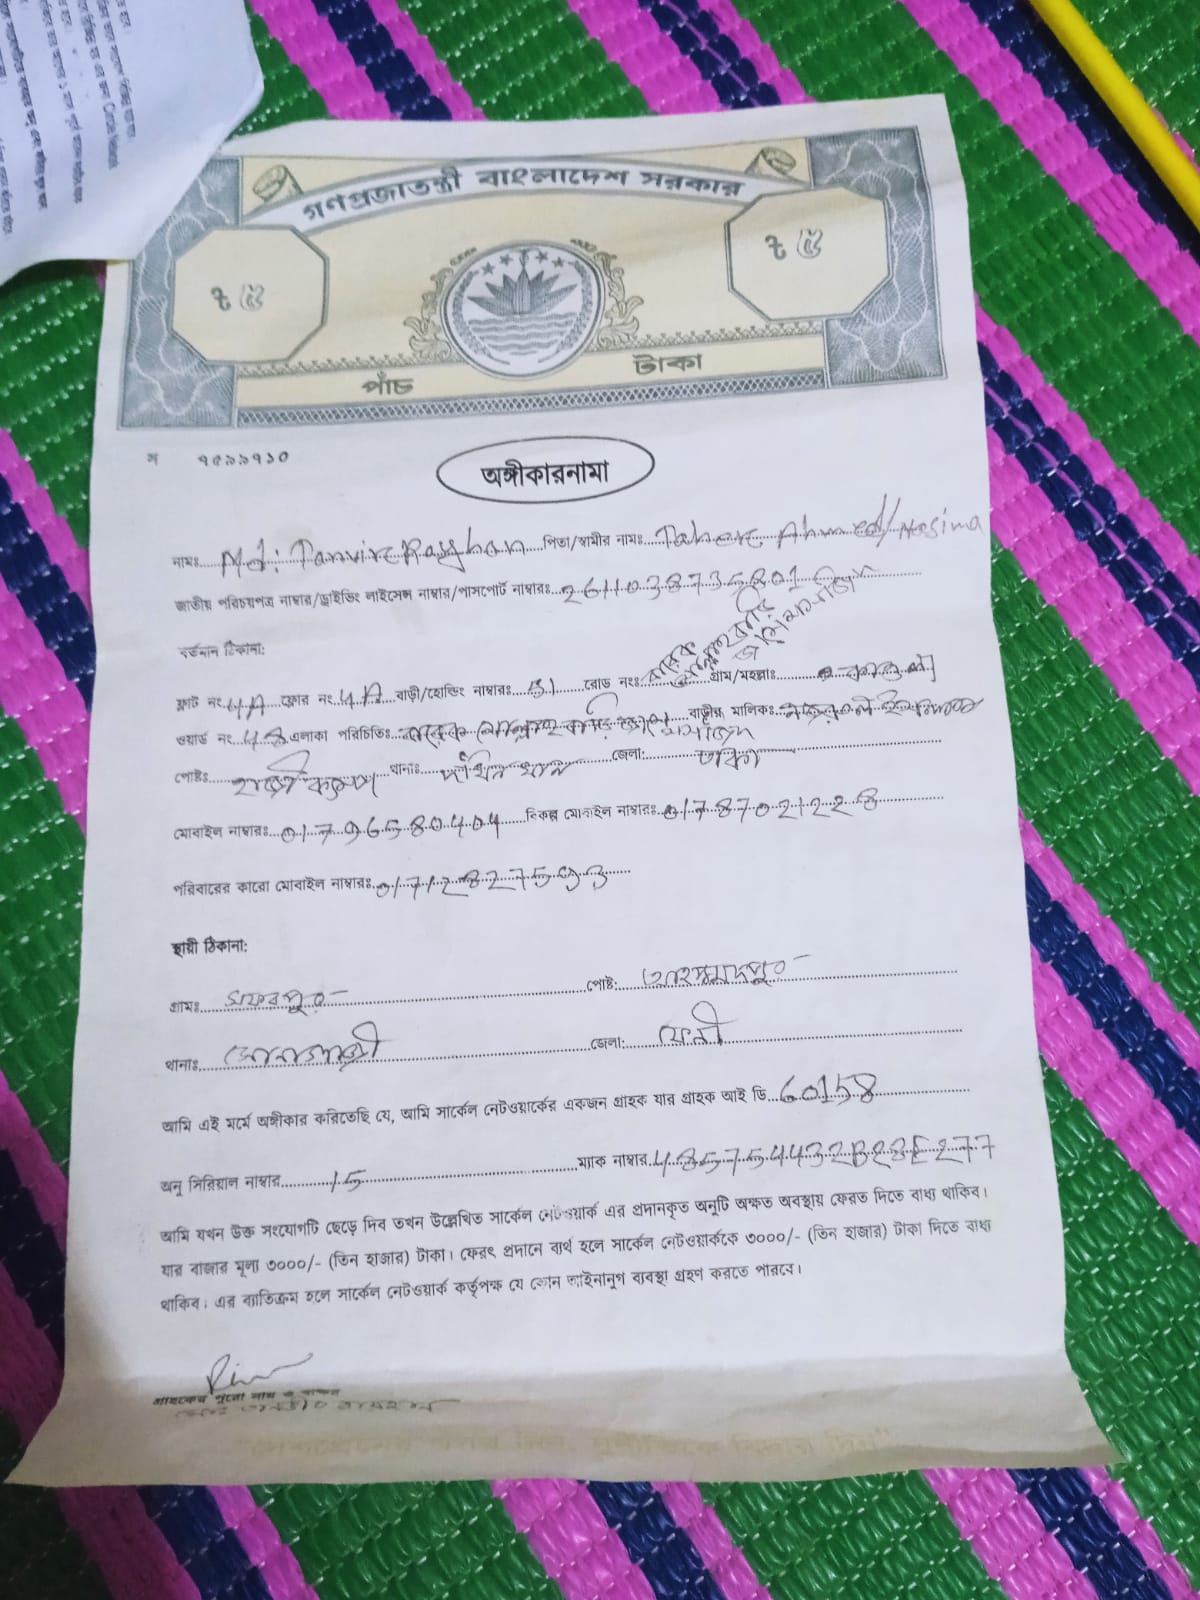 গণপ্রজাতন্ত্রী বাংলাদেশ সরকার
৳ ৫
৳ ৫
পাঁচ টাকা
ন ৭৫৯৯৭১০
অঙ্গীকারনামা
নামঃ Md: Tanvir Rayhan পিতা/স্বামীর নামঃ Taher Ahmed/Nasima
জাতীয় পরিচয়পত্র নাম্বার/ড্রাইভিং লাইসেন্স নাম্বার/পাসপোর্ট নাম্বারঃ 2611038735801
বর্তমান ঠিকানা:
ফ্লাট নং 4A ফ্লোর নং 4A বাড়ী/হোল্ডিং নাম্বারঃ 31 রোড নংঃ গ্রাম/মহল্লাঃ
ওয়ার্ড নং 48 এলাকা পরিচিতিঃ বাড়ীর মালিকঃ
পোষ্টঃ থানাঃ দক্ষিনখান জেলা: ঢাকা
মোবাইল নাম্বারঃ 01796580404 বিকল্প মোবাইল নাম্বারঃ 01787021228
পরিবারের কারো মোবাইল নাম্বারঃ 01712827593
স্থায়ী ঠিকানা:
গ্রামঃ সফরপুর পোষ্ট: আহম্মদপুর
থানাঃ সোনাগাজী জেলা: ফেনী
আমি এই মর্মে অঙ্গীকার করিতেছি যে, আমি সার্কেল নেটওয়ার্কের একজন গ্রাহক যার গ্রাহক আই ডি 60158
অনু সিরিয়াল নাম্বার 15 ম্যাক নাম্বার 485754432B28E277
আমি যখন উক্ত সংযোগটি ছেড়ে দিব তখন উল্লেখিত সার্কেল নেটওয়ার্ক এর প্রদানকৃত অনুটি অক্ষত অবস্থায় ফেরত দিতে বাধ্য থাকিব।
যার বাজার মূল্য ৩০০০/- (তিন হাজার) টাকা। ফেরৎ প্রদানে ব্যর্থ হলে সার্কেল নেটওয়ার্ককে ৩০০০/- (তিন হাজার) টাকা দিতে বাধ্য
থাকিব। এর ব্যতিক্রম হলে সার্কেল নেটওয়ার্ক কর্তৃপক্ষ যে কোন আইনানুগ ব্যবস্থা গ্রহণ করতে পারবে।
গ্রাহকের পুরো নাম ও স্বাক্ষর